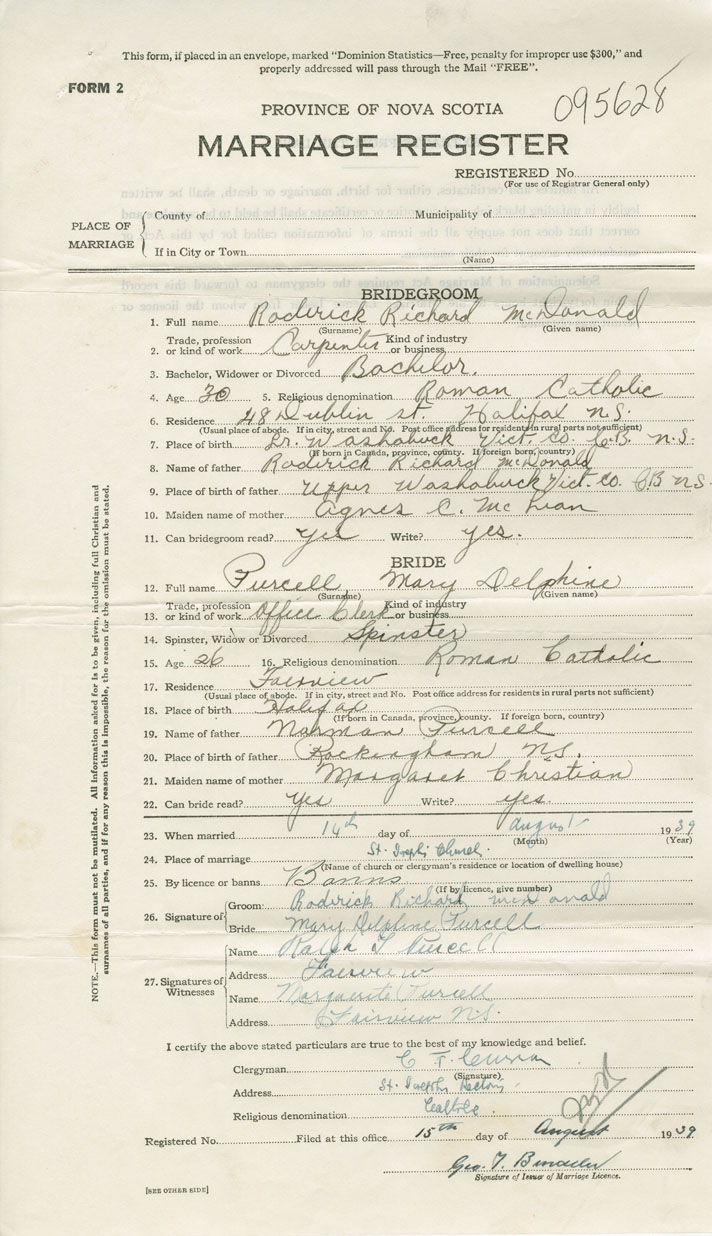 This form, if placed in an envelope, marked "Dominion Statistics—Free, penalty for improper use $300," and
properly addressed will pass through the Mail "FREE".
FORM 2
095628
PROVINCE OF NOVA SCOTIA
MARRIAGE REGISTER
REGISTERED No.
(For use of Registrar General only)
PLACE OF MARRIAGE
County of Municipality of
If in City or Town
(Name)
BRIDEGROOM
1. Full name Roderick Richard McDonald
(Surname) (Given name)
2. Trade, profession or kind of work Carpenter Kind of industry or business
3. Bachelor, Widower or Divorced Bachelor.
4. Age 30 5. Religious denomination Roman Catholic
6. Residence 48 Dublin st. Halifax N.S.
(Usual place of abode. If in city, street and No. Post office address for residents in rural parts not sufficient)
7. Place of birth Lr. Washabuck Vict. Co. C.B. N.S.
(If born in Canada, province, county. If foreign born, country)
8. Name of father Roderick Richard McDonald
9. Place of birth of father Upper Washabuck Vict. Co. C.B. N.S.
10. Maiden name of mother Agnes C. McLean
11. Can bridegroom read? Yes Write? yes.
BRIDE
12. Full name Purcell Mary Delphine
(Surname) (Given name)
13. Trade, profession or kind of work Office Clerk Kind of industry or business
14. Spinster, Widow or Divorced Spinster
15. Age 26 16. Religious denomination Roman Catholic
17. Residence Fairview
(Usual place of abode. If in city, street and No. Post office address for residents in rural parts not sufficient)
18. Place of birth Halifax
(If born in Canada, province, county. If foreign born, country)
19. Name of father Norman Purcell
20. Place of birth of father Rockingham N.S.
21. Maiden name of mother Margaret Christian
22. Can bride read? Yes Write? yes.
23. When married 14th day of August 1939
(Month) (Year)
24. Place of marriage St. Josephs Church.
(Name of church or clergyman's residence or location of dwelling house)
25. By licence or banns Banns
(If by licence, give number)
26. Signature of
Groom: Roderick Richard McDonald
Bride Mary Delphine Purcell
27. Signatures of Witnesses
Name Ralph Purcell
Address Fairview
Name Marguerite Purcell
Address Fairview N.S.
I certify the above stated particulars are true to the best of my knowledge and belief.
Clergyman C. F. Curran
(Signature)
Address St. Josephs Rectory
Religious denomination Catholic
Registered No. Filed at this office 15th day of August 1939
Geo. T.
Signature of Issuer of Marriage Licence.
[SEE OTHER SIDE]
NOTE.—This form must not be mutilated. All information asked for is to be given, including full Christian and
surnames of all parties, and if for any reason this is impossible, the reason for the omission must be stated.